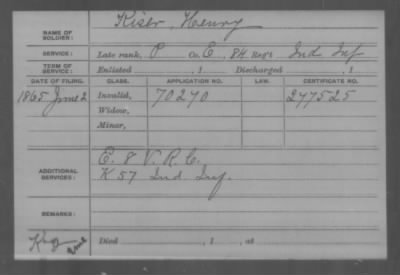 NAME OF SOLDIER: Kiser, Henry
SERVICE: Late rank, P Co. E, 84 Reg't Ind Inf
TERM OF SERVICE: Enlisted , 1 Discharged , 1
DATE OF FILING. CLASS. APPLICATION NO. LAW. CERTIFICATE NO.
1865 June 2 Invalid, 70270 247525
Widow,
Minor,
ADDITIONAL SERVICES: E. 8 V. R. C.
K 57 Ind. Inf.
REMARKS:
Died , 1 , at